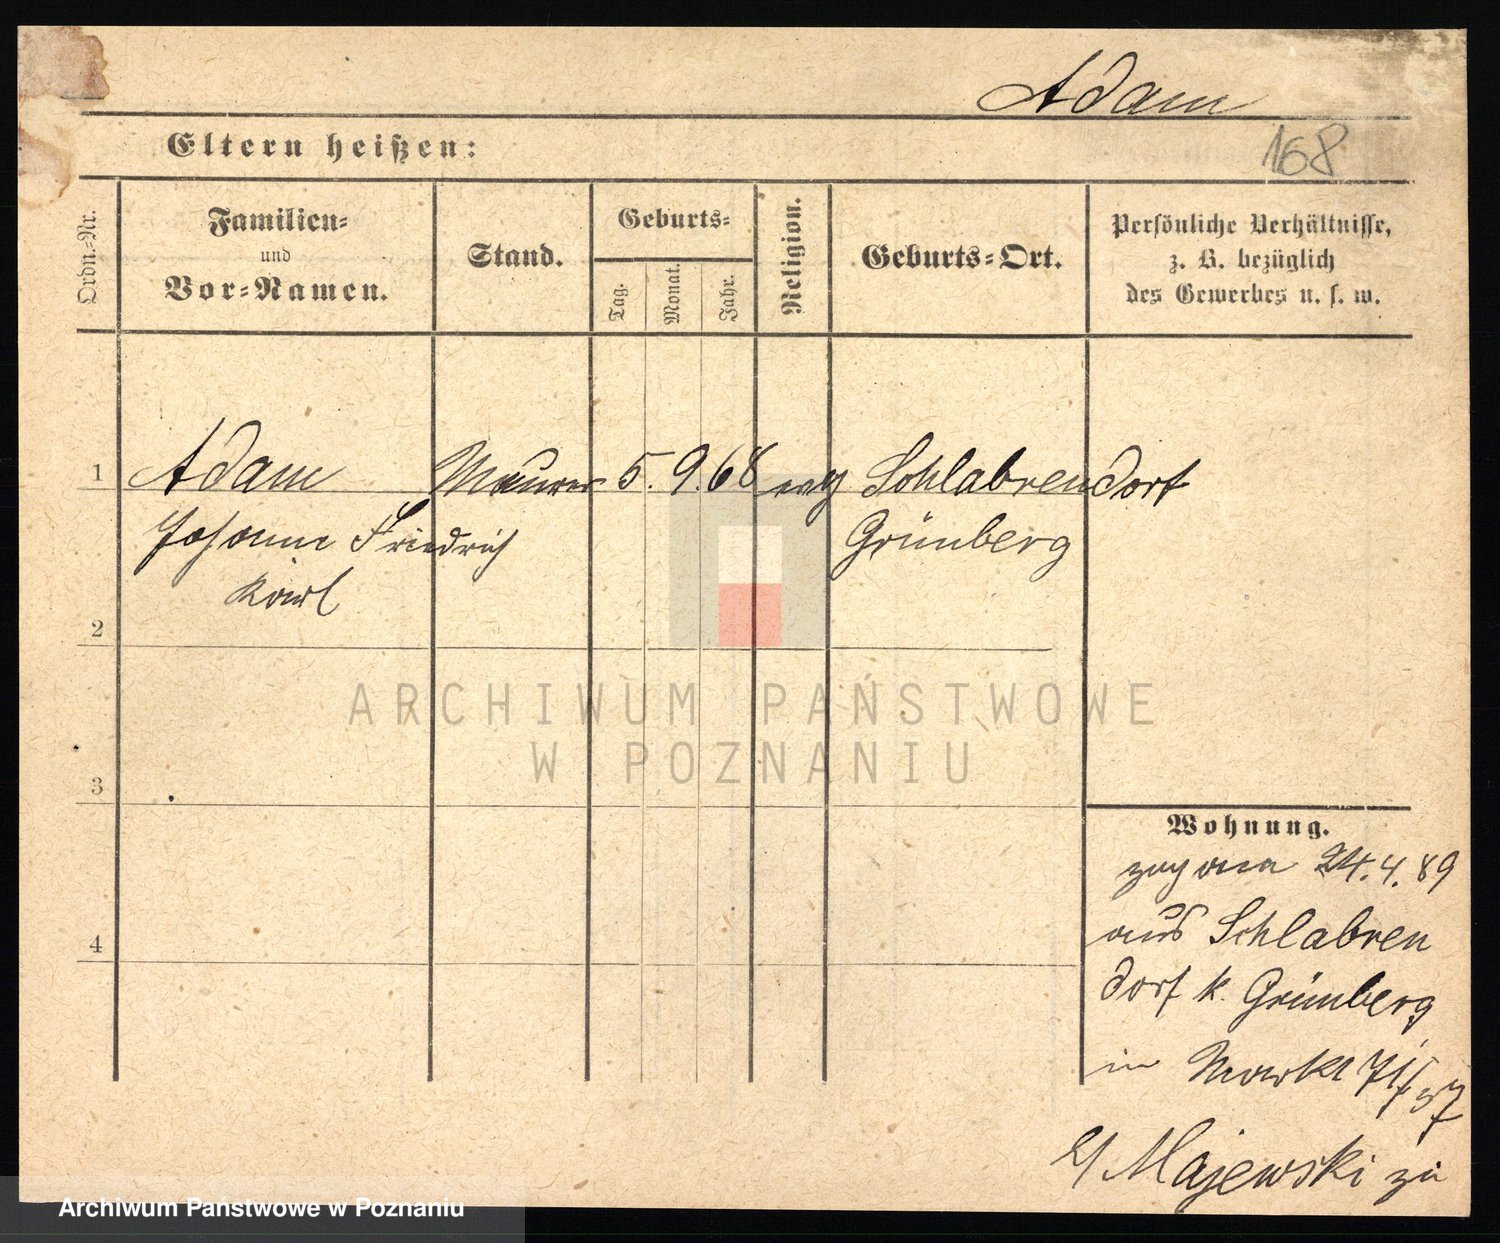 Adam
Eltern heißen:
168
Ordn.-Nr.
Familien-
und
Vor-Namen.
Stand.
Geburts-
Tag.
Monat.
Jahr.
Religion.
Geburts-Ort.
Persönliche Verhältnisse,
z. B. bezüglich
des Gewerbes u. s. w.
1 Adam Maurer 5. 9. 68 evg Schlabrendorf
Johann Friedrich Grünberg
Karl
2
ARCHIWUM PAŃSTWOWE
W POZNANIU
3
Wohnung.
zug am 24.4.89
aus Schlabren
4
dorf k. Grünberg
in Markt 71/
b/ Majewski zu
Archiwum Państwowe w Poznaniu